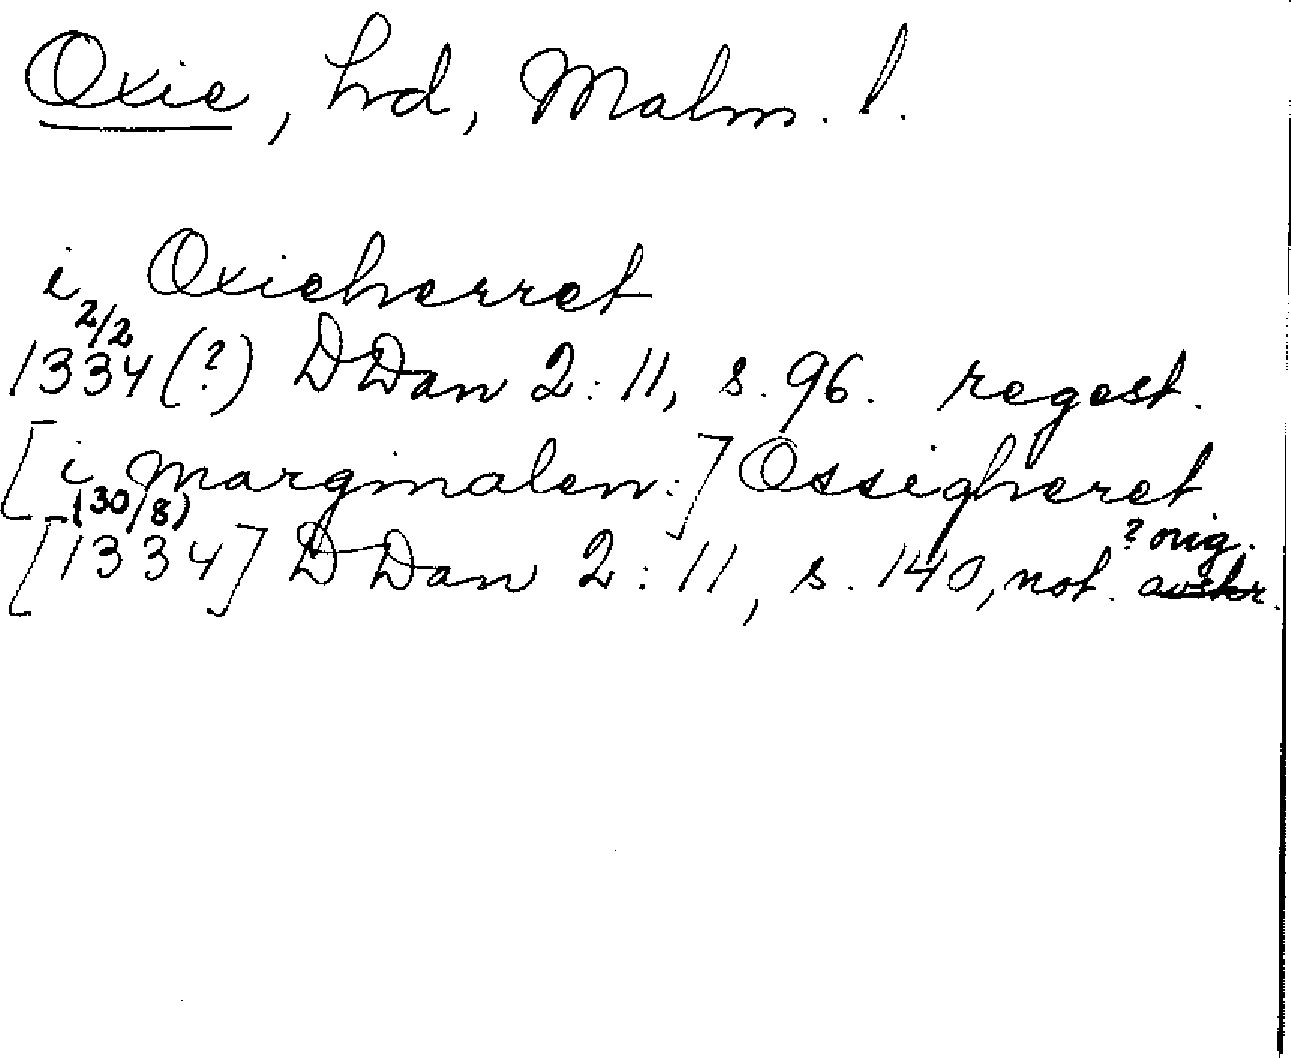 Oxie, hd, Malm. l.
i Oxieherret
2/2
1334 (?) DDan 2:11, s. 96. regest.
[i marginalen:] Ossigheret
(30/8)
? orig.
[1334] DDan 2:11, s. 140, not. avskr.